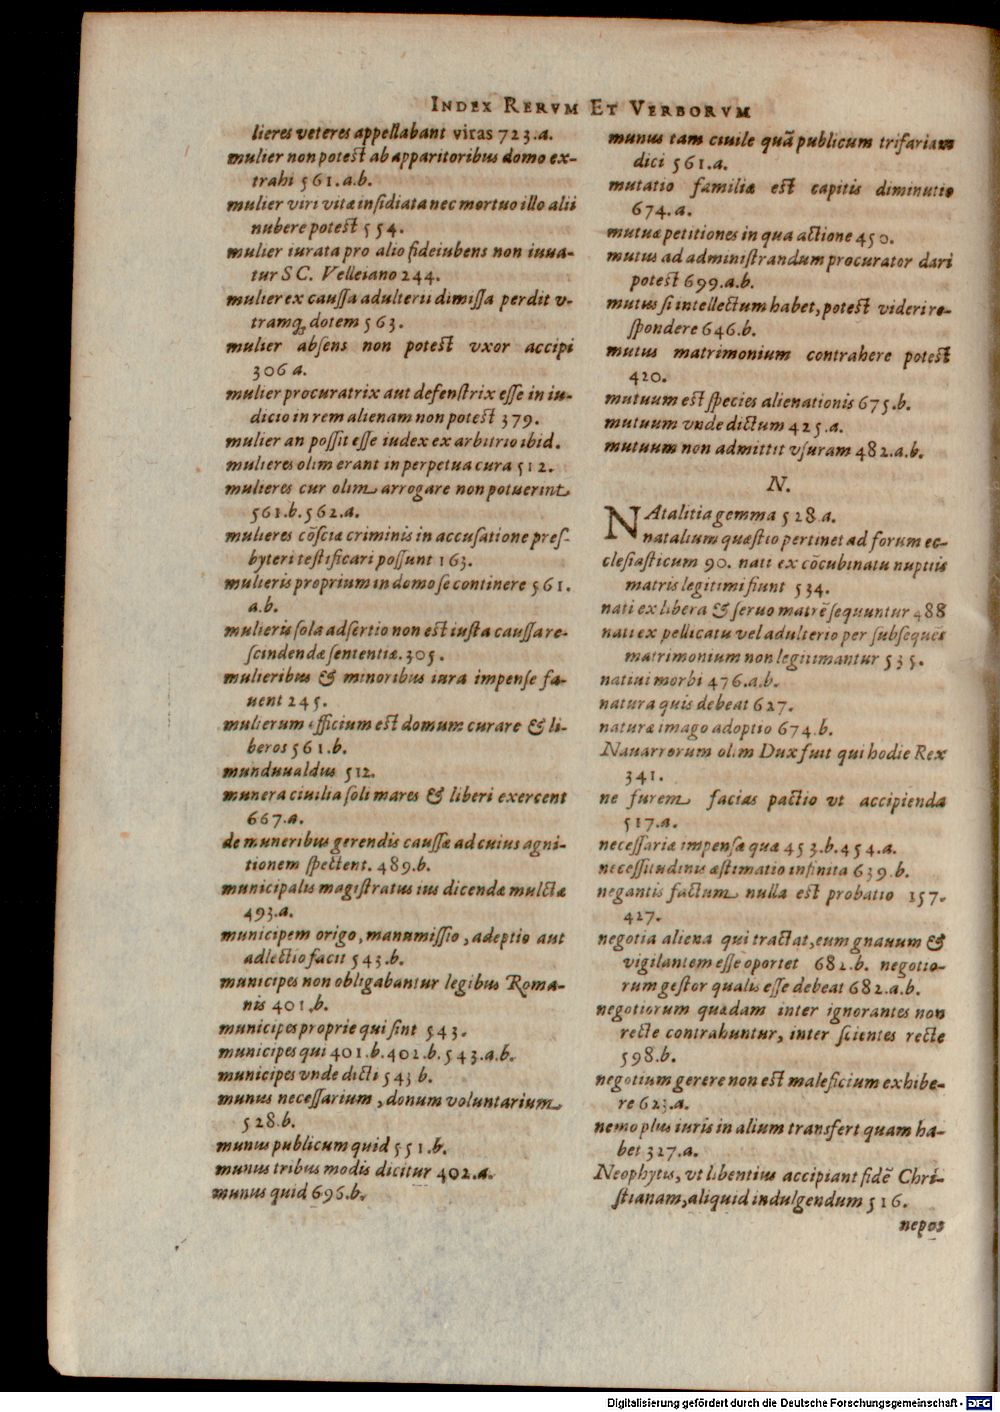 INDEX RERVM ET VERBORVM
lieres veteres appellabant viras 723.a.
mulier non potest ab apparitoribus domo ex-
trahi 561.a.b.
mulier viri vitæ insidiata nec mortuo illo alii
nubere potest 554.
mulier iurata pro alio fideiubens non iuua-
tur SC. Velleiano 244.
mulier ex caussa adulterii dimissa perdit v-
tramq; dotem 563.
mulier absens non potest vxor accipi
306 a.
mulier procuratrix aut defenstrix esse in iu-
dicio in rem alienam non potest 379.
mulier an possit esse iudex ex arbitrio ibid.
mulieres olim erant in perpetua cura 512.
mulieres cur olim arrogare non potuerint
561.b.562.a.
mulieres cõsciæ criminis in accusatione pres-
byteri testificari possunt 163.
mulieris proprium in domo se continere 561.
a.b.
mulieris sola adsertio non est iusta caussa re-
scindendæ sententiæ.305.
mulieribus & minoribus iura impense fa-
uent 245.
mulierum officium est domum curare & li-
beros 561.b.
munduualdus 512.
munera ciuilia soli mares & liberi exercent
667.a.
de muneribus gerendis caussæ ad cuius agni-
tionem spectent. 489.b.
municipalis magistratus ius dicendæ mulctæ
493.a.
municipem origo, manumissio, adeptio aut
adlectio facit 543.b.
municipes non obligabantur legibus Roma-
nis 401.b.
municipes proprie qui sint 543.
municipes qui 401.b.402.b.543.a.b.
municipes vnde dicti 543 b.
munus necessarium, donum voluntarium
528.b.
munus publicum quid 551.b.
munus tribus modis dicitur 402.a.
munus quid 696.b.
munus tam ciuile quã publicum trifariam
dici 561.a.
mutatio familiæ est capitis diminutio
674.a.
mutuæ petitiones in qua actione 450.
mutus ad administrandum procurator dari
potest 699.a.b.
mutus si intellectum habet, potest videri re-
spondere 646.b.
mutus matrimonium contrahere potest
420.
mutuum est species alienationis 675.b.
mutuum vnde dictum 425.a.
mutuum non admittit vsuram 482.a.b.
N.
NAtalitia gemma 528.a.
natalium quæstio pertinet ad forum ec-
clesiasticum 90. nati ex cõcubinatu nuptiis
matris legitimi fiunt 534.
nati ex libera & seruo matrẽ sequuntur 488
nati ex pellicatu vel adulterio per subsequẽs
matrimonium non legitimantur 535.
natiui morbi 476.a.b.
natura quis debeat 627.
naturæ imago adoptio 674.b.
Nauarrorum olim Dux fuit qui hodie Rex
341.
ne furem facias pactio vt accipienda
517.a.
necessariæ impensæ quæ 453.b.454.a.
necessitudinis æstimatio infinita 639.b.
negantis factum nulla est probatio 157.
427.
negotia aliena qui tractat, eum gnauum &
vigilantem esse oportet 682.b. negotio-
rum gestor qualis esse debeat 682.a.b.
negotiorum quædam inter ignorantes non
recte contrahuntur, inter scientes recte
598.b.
negotium gerere non est maleficium exhibe-
re 623.a.
nemo plus iuris in alium transfert quam ha-
bet 327.a.
Neophytis, vt libentius accipiant fidẽ Chri-
stianam, aliquid indulgendum 516.
nepos
Digitalisierung gefördert durch die Deutsche Forschungsgemeinschaft - DFG